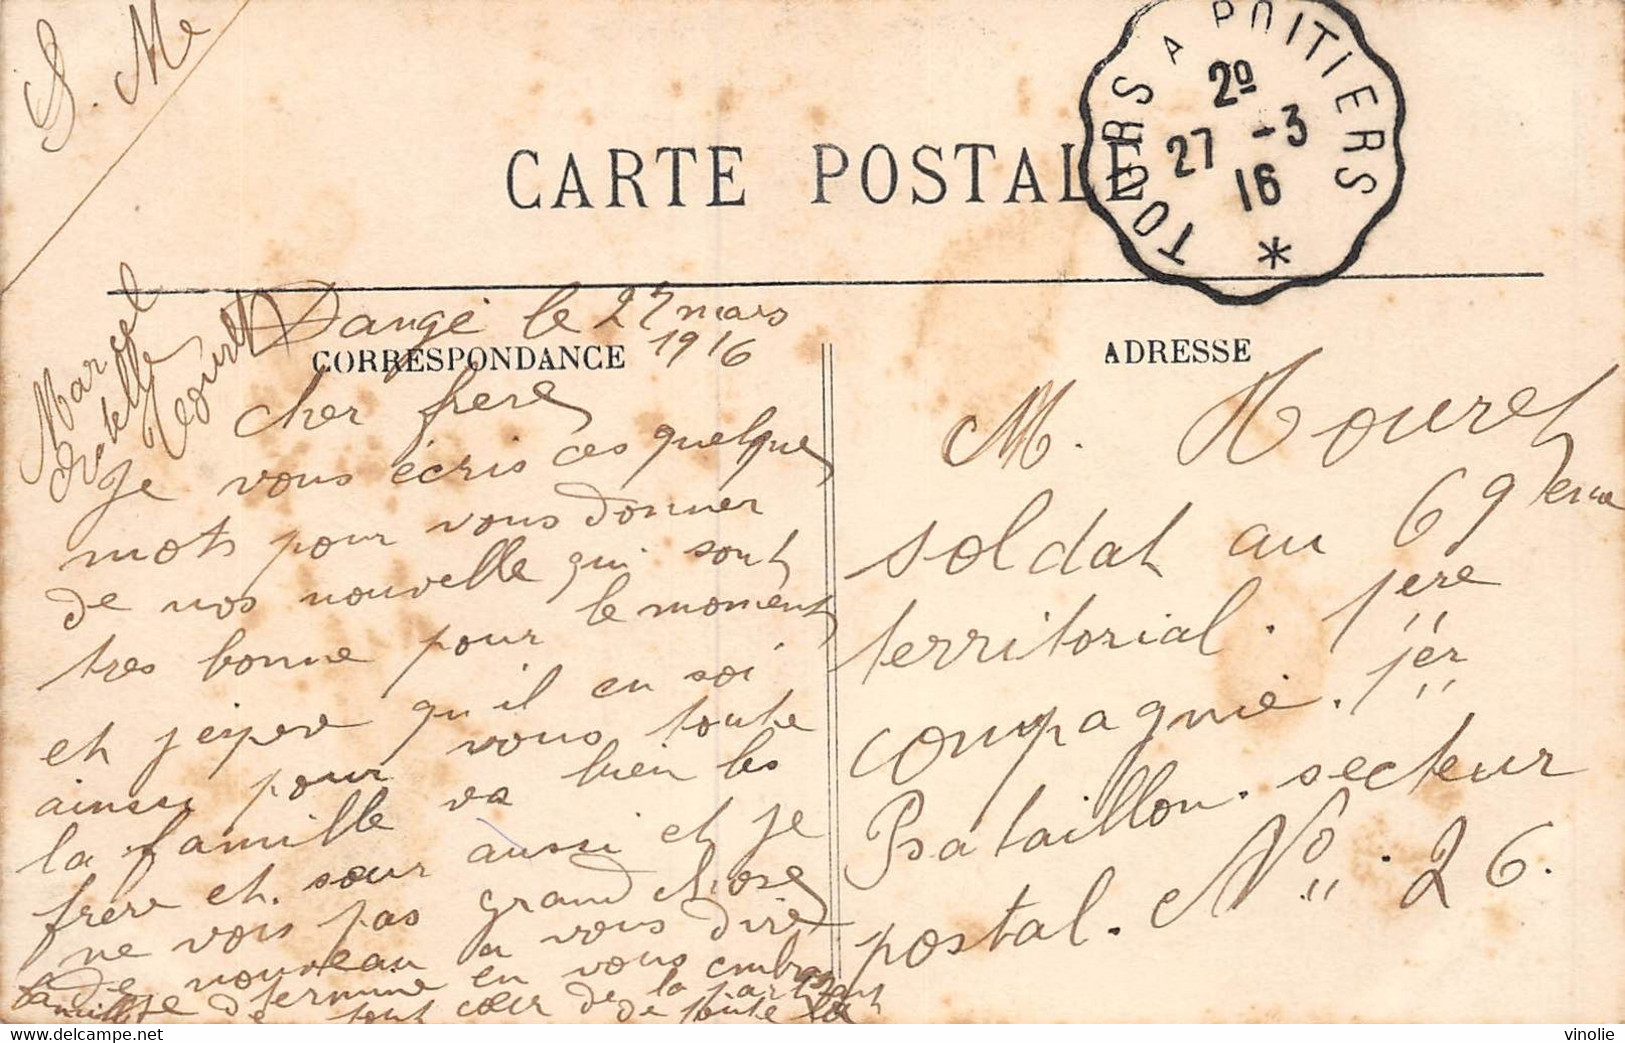 S. Me
CARTE POSTALE
TOURS A POITIERS
2º
27 -3
16
*
CORRESPONDANCE
ADRESSE
Marcel
Estelle
Touret
Dangé le 27 mars
1916
Cher frere
Je vous écris ces quelque
mots pour vous donner
de nos nouvelle qui sont
tres bonne pour le moment
et j'espere qu'il en soi
ainsi pour vous toute
la famille va bien les
frère et sœur aussi et je
ne vois pas grand chose
de nouveau a vous dire
je termine en vous embrassant
de tout cœur de la part
de toute la
famille
M. Touret
soldat au 69 eme
territorial. 1ère
compagnie. 1er
Bataillon. secteur
postal. No. 26.
vinolie